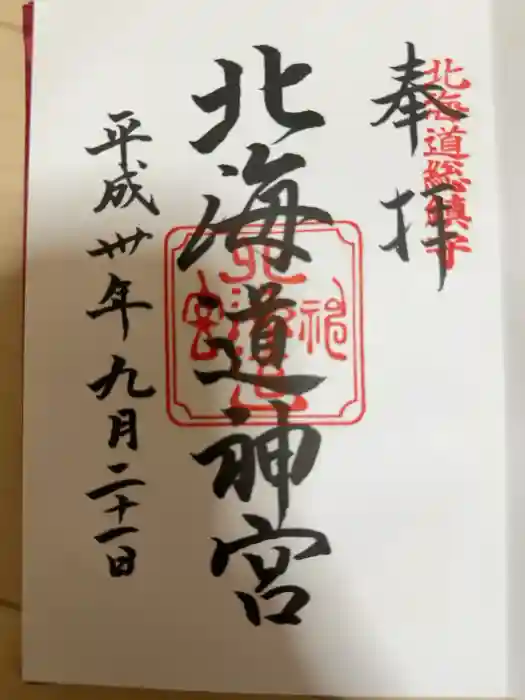 奉拝
北海道総鎮守
北海道神宮
平成卅年九月二十一日